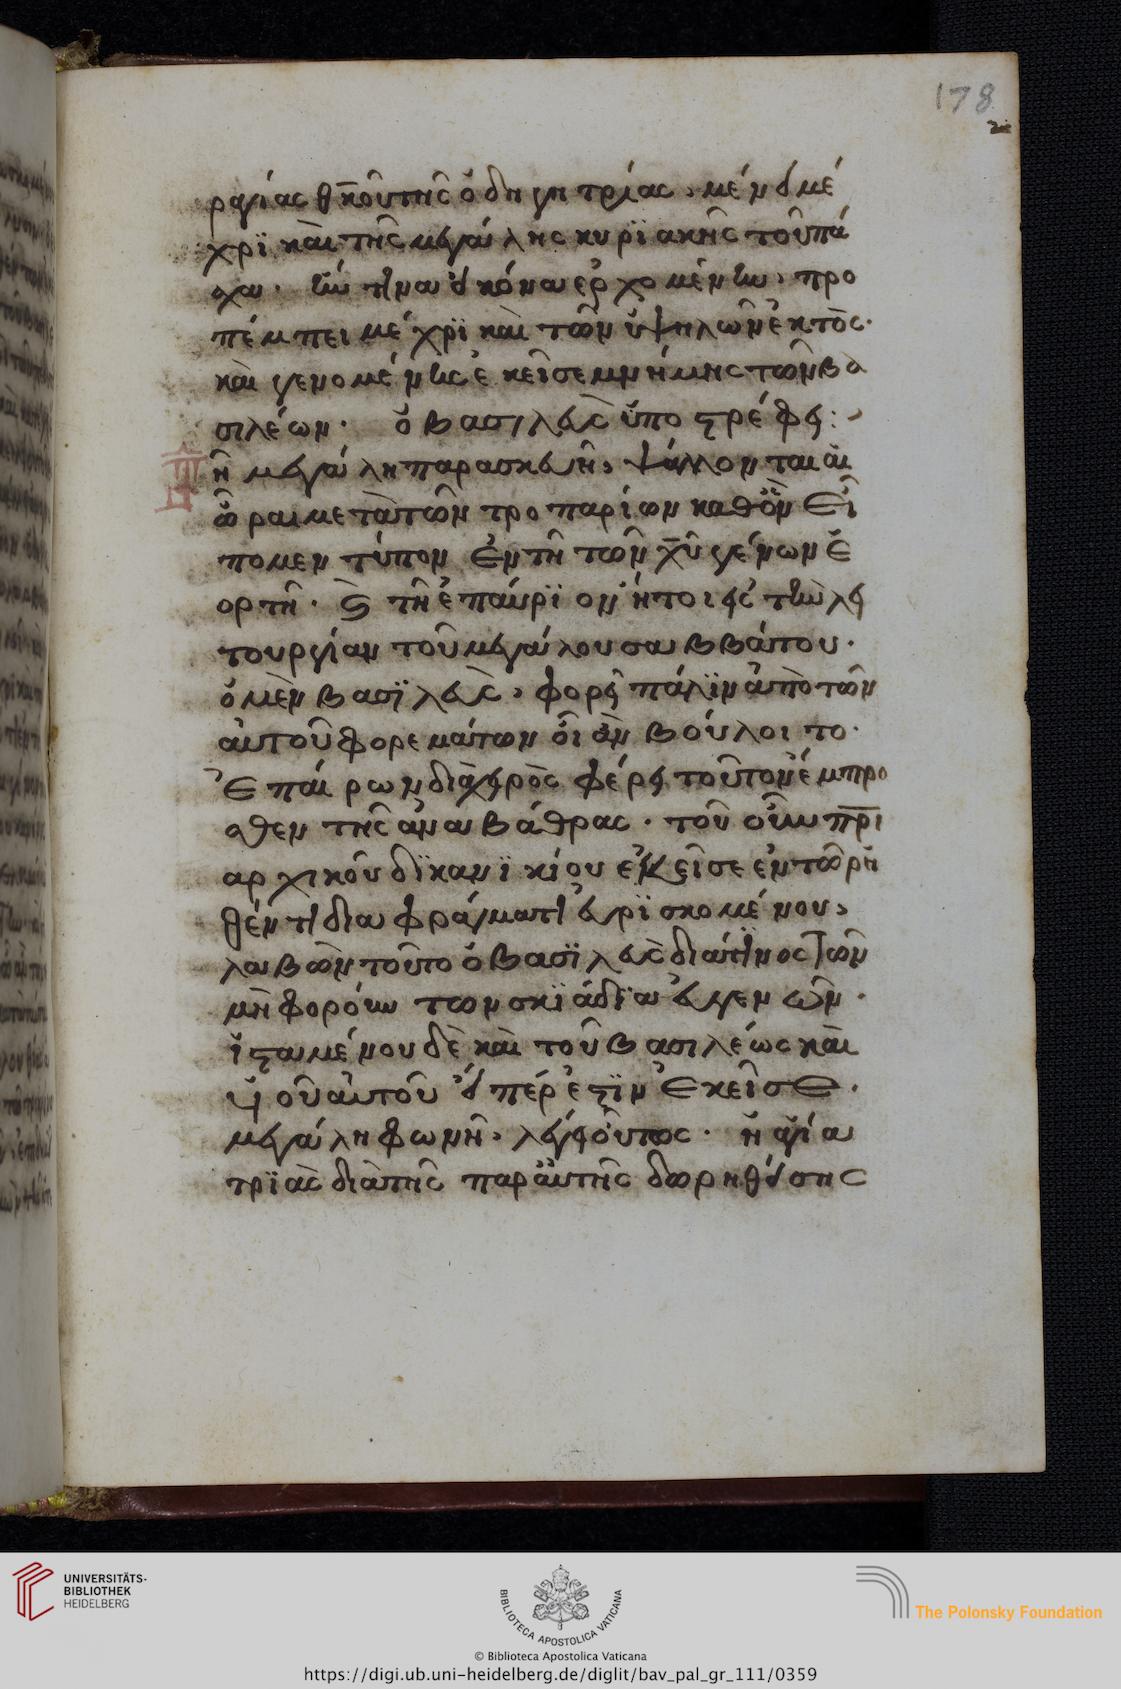 178
ραγίας θκου της ὁδηγητρίας, μένει μέ
χρι καὶ τῆς μεγάλης κυριακῆς τοῦ πά
σχα. τὴν τοιαύτην εἰκόνα ἐρχομένην, προ
πέμπει μέχρι καὶ τῶν ὑψηλῶν ἐκτός.
καὶ γενομένης ἐκεῖσε μνήμης τῶν βα
σιλέων. ὁ βασιλεὺς ὑποστρέφει:
ἡ μεγάλη παρασκευῆ, ψάλλονται αἱ
ὧραι μετὰ τῶν τροπαρίων καθ' ὃν εἴ
πομεν τύπον ἐν τῇ τῶν χυ γέννων ἑ
ορτῇ. τῇ ἐπαύριον ἤτοι εἰς τὴν λει
τουργίαν τοῦ μεγάλου σαββάτου.
ὁ μὲν βασιλεὺς, φορεῖ πάλιν ἀπὸ τῶν
αὐτοῦ φορεμάτων οἷον ἂν βούλοιτο.
ἐπαίρων διὰ χειρὸς φέρει τοῦτον ἔμπρο
σθεν τῆς ἀναβάθρας. τοῦ οὖν πρι
αρχικοῦ δικανικίου ἐκεῖσε ἐν τῷ ῥη
θέντι διαφράγματι εὑρισκομένου,
λαβὼν τοῦτο ὁ βασιλεὺς διά τινος τῶν
μὴ φορούντων σκιάδια εὐγενῶν.
ἱσταμένου δὲ καὶ τοῦ βασιλέως καὶ
υἱοῦ αὐτοῦ εἴπερ ἐστὶν ἐκεῖσε.
μεγάλη φωνῇ, λέγει οὕτως. ἡ ἁγία
τριὰς διὰ τῆς παρ' αὐτῆς δωρηθείσης
UNIVERSITÄTS-
BIBLIOTHEK
HEIDELBERG
BIBLIOTECA APOSTOLICA VATICANA
The Polonsky Foundation
© Biblioteca Apostolica Vaticana
https://digi.ub.uni-heidelberg.de/diglit/bav_pal_gr_111/0359